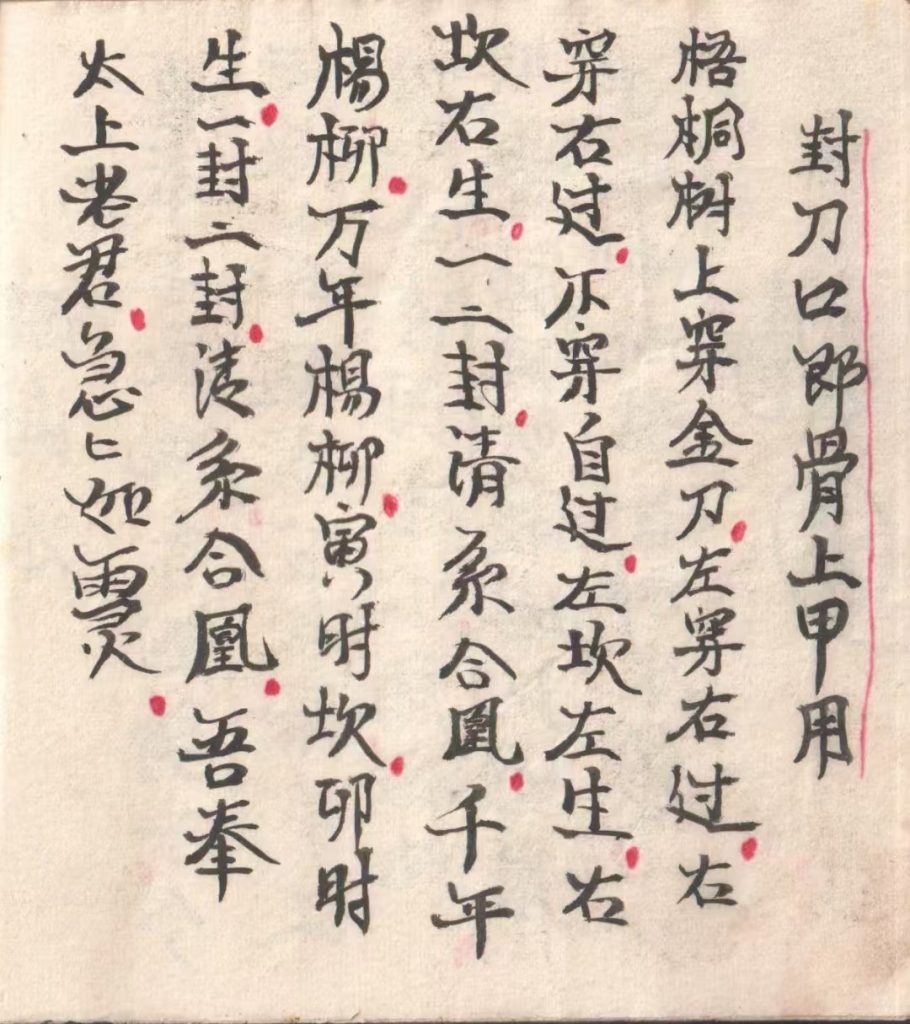 封刀口郎骨上甲用
梧桐树上穿金刀左穿右过右
穿右过不穿自过左坎左生右
坎右生一二封清系合凰千年
楊柳万年楊柳寅时坎卯时
生一封二封清系合凰吾奉
太上老君急匕如灵